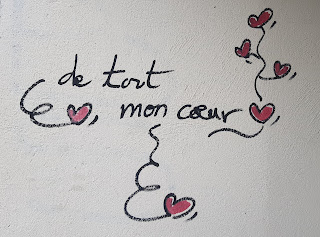 de tout
mon cœur